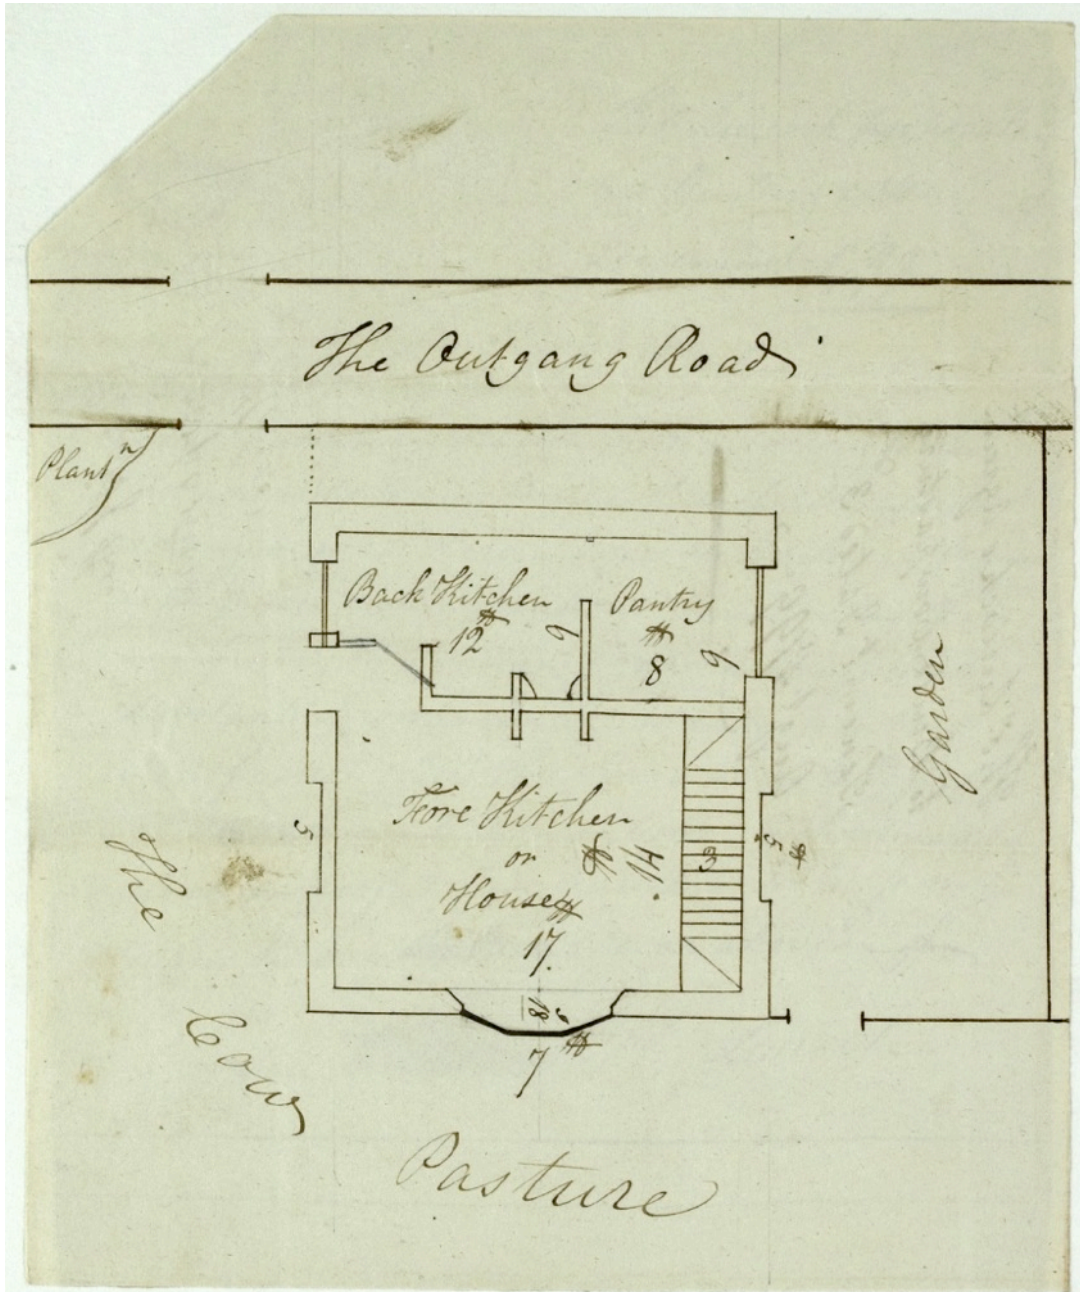 The Outgang Road
Plantn
Back Kitchen
12
9
Pantry
8
9
Garden
Fore Kitchen
or
House
17
14
3
5
5
18
7
The
Cow
Pasture